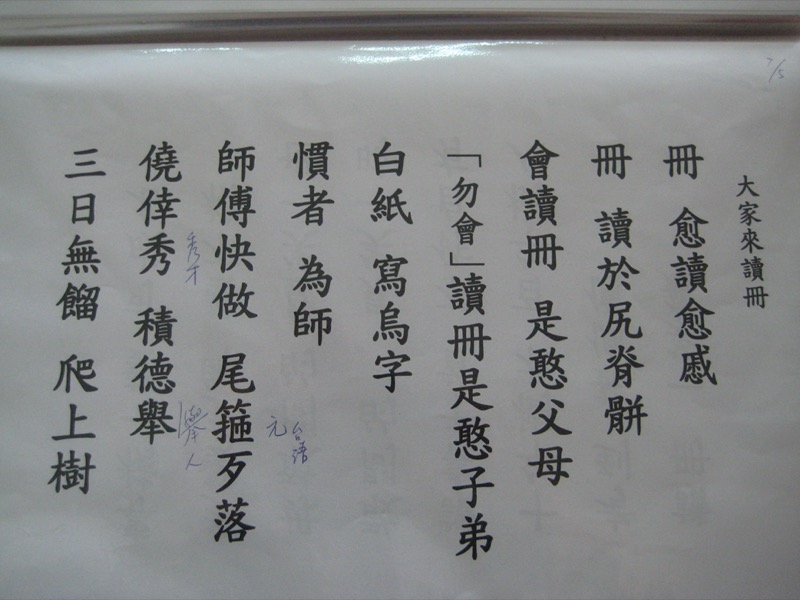 7/5
大家來讀冊
冊 愈讀愈慼
冊 讀於尻脊骿
會讀冊 是憨父母
「勿會」讀冊是憨子弟
白紙 寫烏字
慣者 為師
台語
元
師傅快做 尾箍歹落
秀才
舉人
僥倖秀 積德舉
三日無餾 爬上樹